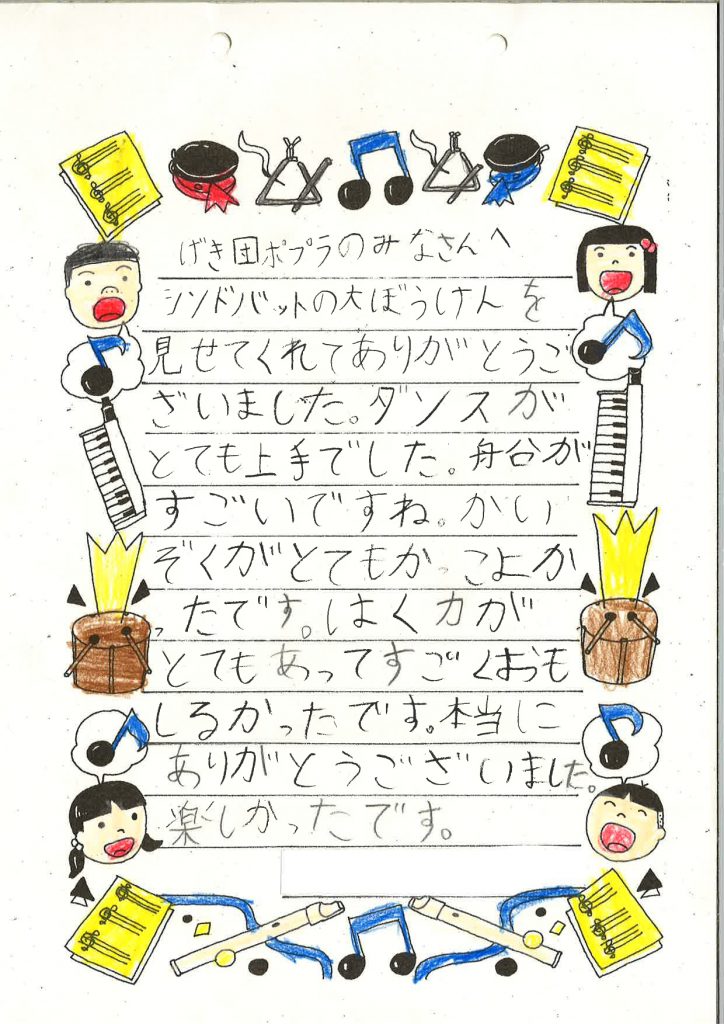 げき団ポプラのみなさんへ
シンドバットの大ぼうけんを
見せてくれてありがとうご
ざいました。ダンスが
とても上手でした。舟谷が
すごいですね。かい
ぞくがとてもかっこよか
ったです。はく力が
とてもあってすごくおも
しるかったです。本当に
ありがとうございました。
楽しかったです。